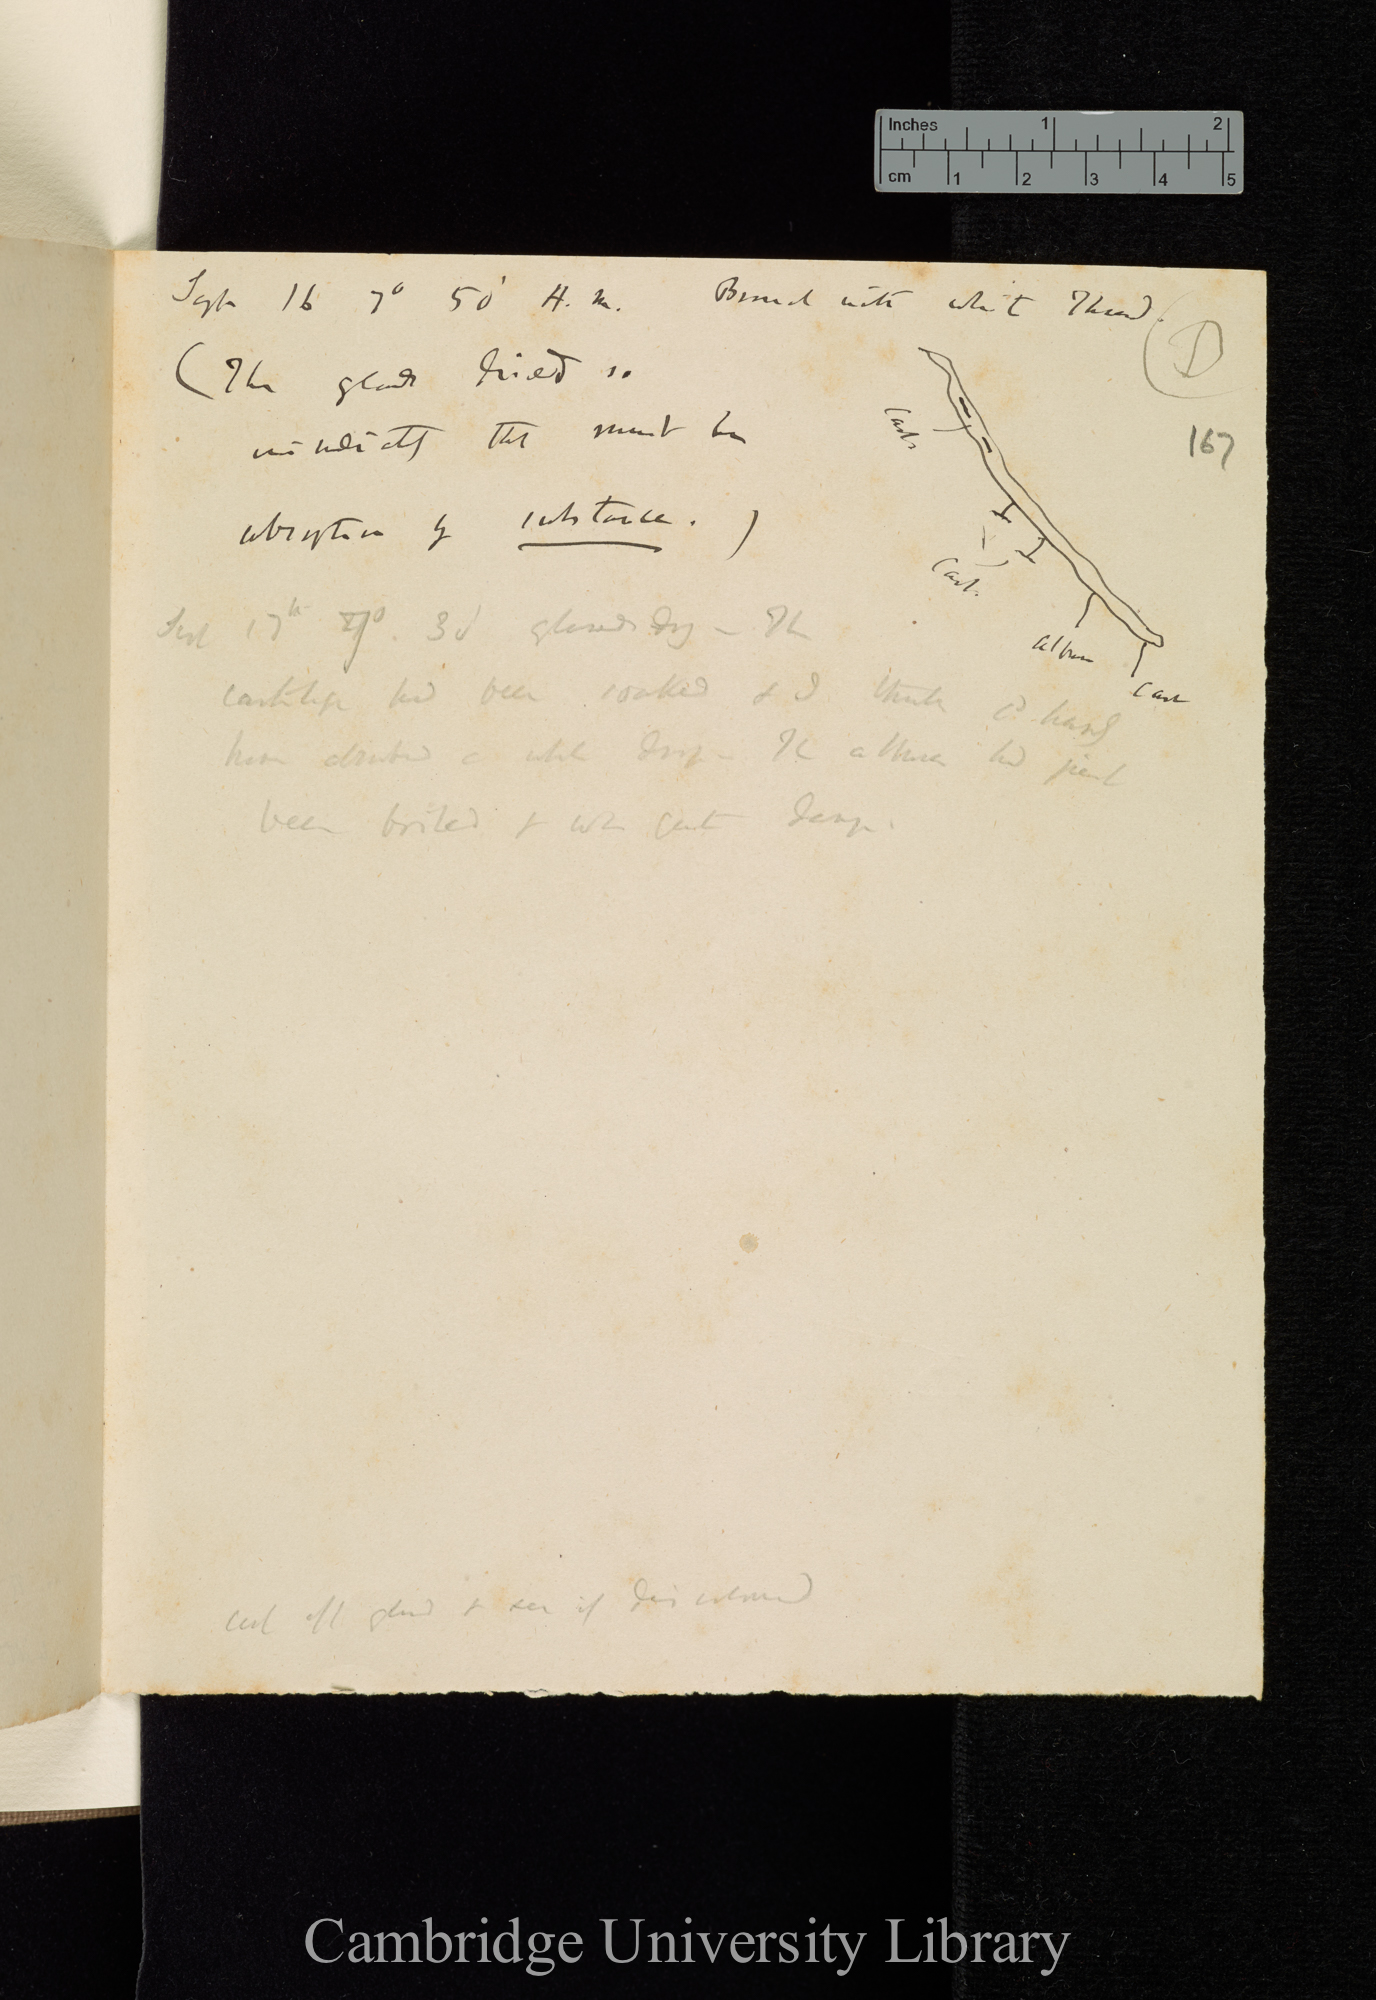 Inches 1 2
cm 1 2 3 4 5
Sept 16 7° 50' A.m. Bound with white Thread.
D
(The glands dried so
167
immediately that must be
absorption of substance.)
Cart.
Cart.
album
Cart
Sept 17th 7°. 30' glands dry — The
cartilage had been soaked & I think it had
have absorbed a whole drop — The albumen had just
been boiled & was quite damp.
cut off gland & see if discoloured
Cambridge University Library